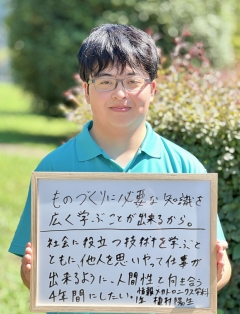 ものづくりに必要な知識を
広く学ぶことが出来るから。
社会に役立つ技術を学ぶと
ともに、他人を思いやって仕事が
出来るように、人間性と向き合う
4年間にしたい。
情報メカトロニクス学科
1年 植村陽生